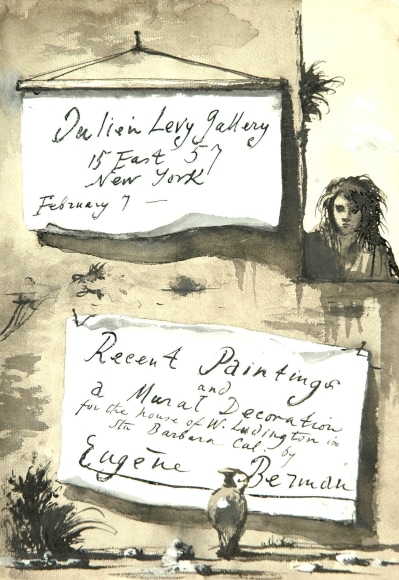 Julien Levy Gallery
15 East 57
New York
February 7 —
Recent Paintings
and
a Mural Decoration
for the house of W. Ludington in
Sta Barbara Cal. by
Eugène Berman